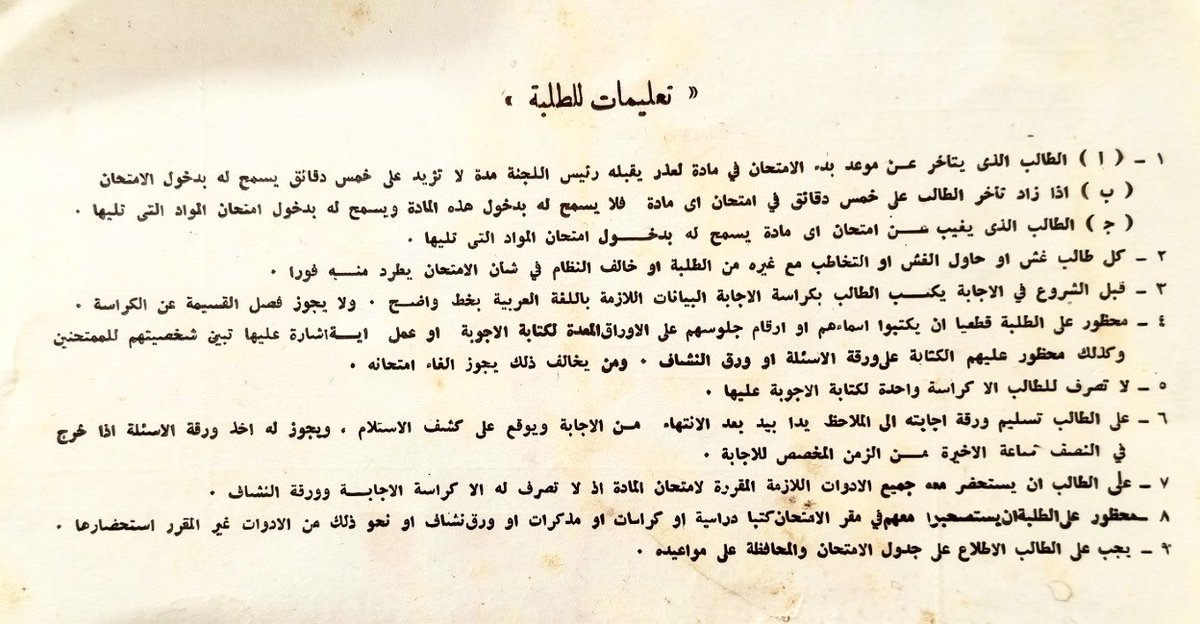 « تعليمات للطلبة »
١ ـ ( ا ) الطالب الذى يتاخر عـن موعد بدء الامتحان في مادة لعذر يقبله رئيس اللجنة مدة لا تزيد على خمس دقائق يسمح له بدخول الامتحان
( ب ) اذا زاد تأخر الطالب على خمس دقائق في امتحان اى مادة فلا يسمح له بدخول هذه المادة ويسمح له بدخول امتحان المواد التى تليها .
( ج ) الطالب الذى يغيب عـن امتحان اى مادة يسمح له بدخـــول امتحان المواد التى تليها .
٢ ـ كل طالب غش او حاول الغش او التخاطب مع غيره من الطلبة او خالف النظام في شان الامتحان يطرد منـه فورا .
٣ ـ قبل الشروع في الاجابة يكتـب الطالب بكراسة الاجابة البيانات اللازمة باللغة العربية بخط واضـح . ولا يجوز فصل القسيمة عن الكراسة .
٤ ـ محظور على الطلبة قطعيا ان يكتبوا اسماءهم او ارقام جلوسهم على الاوراق المعدة لكتابة الاجوبة او عمل ايـة اشارة عليها تبين شخصيتهم للممتحنين
وكذلك محظور عليهم الكتابة على ورقة الاسئلة او ورق النشاف . ومن يخالف ذلك يجوز الغاء امتحانه .
٥ ـ لا تصرف للطالب الا كراسة واحدة لكتابة الاجوبة عليها .
٦ ـ على الطالب تسليم ورقة اجابته الى الملاحظ يدا بيد بعد الانتهاء مـن الاجابة ويوقع على كشف الاستلام ، ويجوز له اخذ ورقة الاسئلة اذا خرج
في النصف ساعة الاخيرة مــن الزمن المخصص للاجابة .
٧ ـ على الطالب ان يستحضر معه جميع الادوات اللازمة المقررة لامتحان المادة اذ لا تصرف له الا كراسة الاجابــة وورقة النشاف .
٨ ـ محظور على الطلبة ان يستصحبوا معهم في مقر الامتحان كتبا دراسية او كراسات او مذكرات او ورق نشاف او نحو ذلك من الادوات غير المقرر استحضارها .
٩ ـ يجب على الطالب الاطلاع على جدول الامتحان والمحافظة على مواعيده .